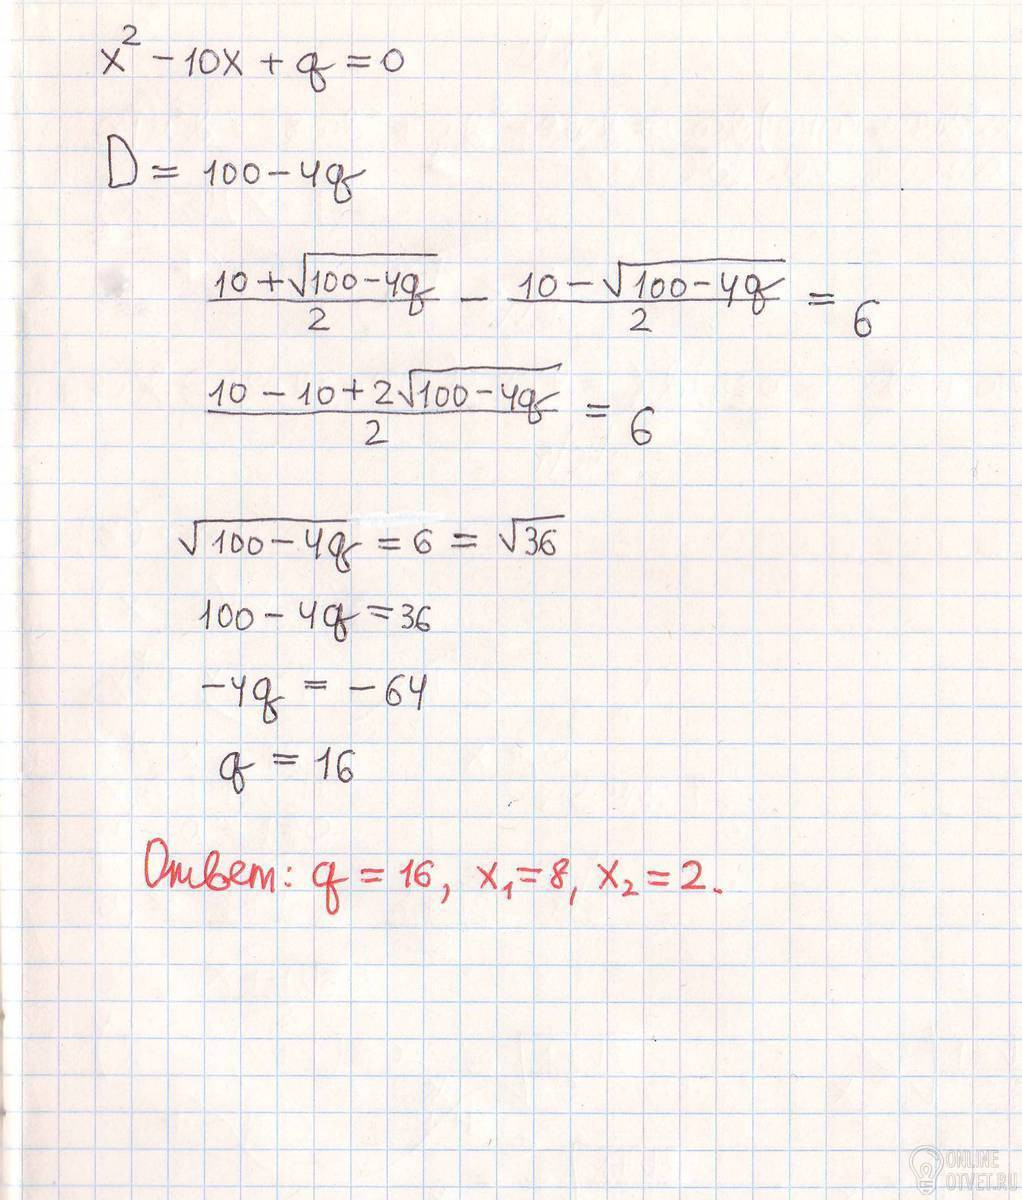 x² - 10x + q = 0
D = 100 - 4q
(10 + √(100 - 4q))/2 - (10 - √(100 - 4q))/2 = 6
(10 - 10 + 2√(100 - 4q))/2 = 6
√(100 - 4q) = 6 = √36
100 - 4q = 36
-4q = -64
q = 16
Ответ: q = 16, x₁ = 8, x₂ = 2.
ONLINE
OTVET.RU